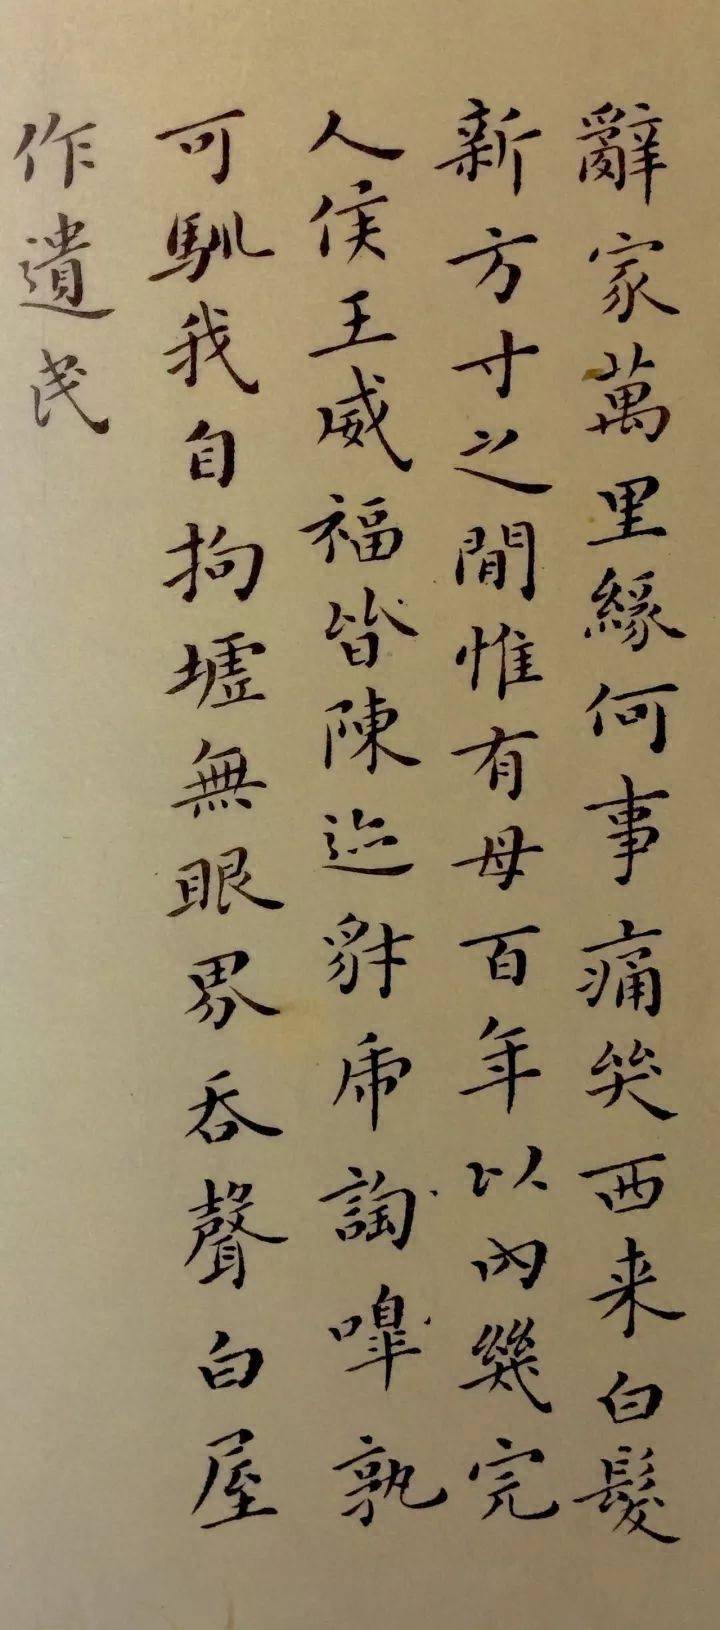 辭家萬里緣何事痛哭西来白髮
新方寸之間惟有母百年以內幾完
人侯王威福皆陳迹豺虎嘷孰
可馴我自拘墟無眼界吞聲白屋
作遺民